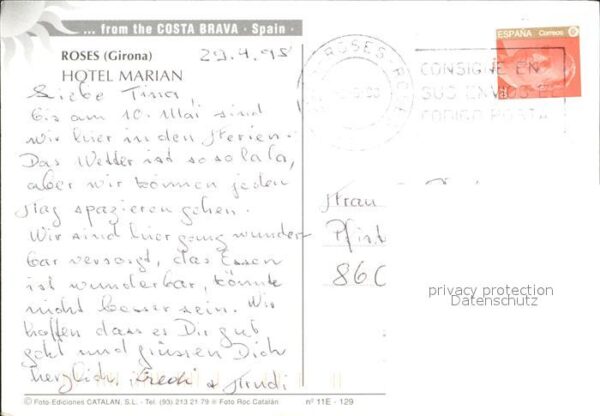 ... from the COSTA BRAVA · Spain ·
ROSES (Girona)
HOTEL MARIAN
29.4.98
Liebe Tina,
bis am 10. Mai sind
wir hier in den Ferien.
Das Wetter ist so so lala,
aber wir können jeden
Tag spazieren gehen.
Wir sind hier ganz wunder-
bar versorgt, das Essen
ist wunderbar, könnte
nicht besser sein. Wir
hoffen dass es Dir gut
geht und grüssen Dich
herzlich, + Trudi
ESPAÑA Correos
ROSES
CONSIGNE EN
SUS ENVIOS EL
CODIGO POSTA
Frau
Pfist
860
privacy protection
Datenschutz
© Foto-Ediciones CATALAN, S.L. - Tel. (93) 213 21 79 ® Foto Roc Catalán
nº 11E - 129